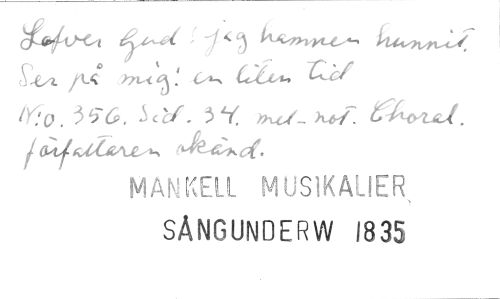 Lofver Gud! jag hamnen hunnit.
Ser på mig! en liten tid
N:o. 356. Sid. 34. mel-not. Choral.
författaren okänd.
MANKELL MUSIKALIER
SÅNGUNDERW 1835